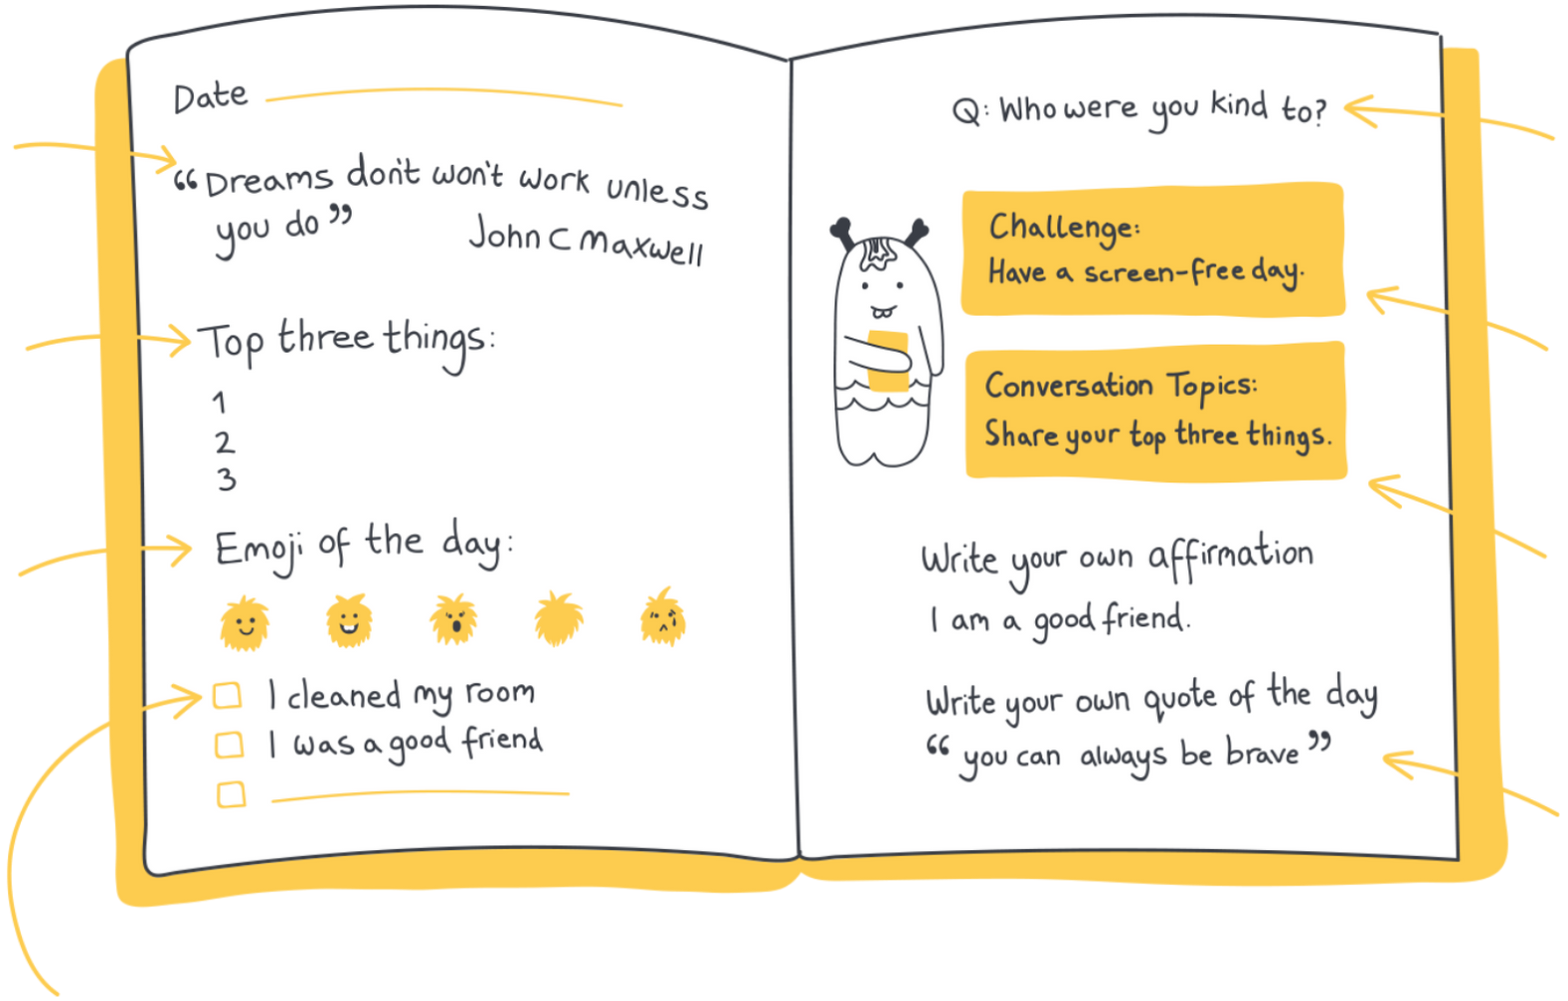 Date
“Dreams don't won't work unless
you do”
John C Maxwell
Top three things:
1
2
3
Emoji of the day:
I cleaned my room
I was a good friend
Q: Who were you kind to?
Challenge:
Have a screen-free day.
Conversation Topics:
Share your top three things.
Write your own affirmation
I am a good friend.
Write your own quote of the day
“you can always be brave”